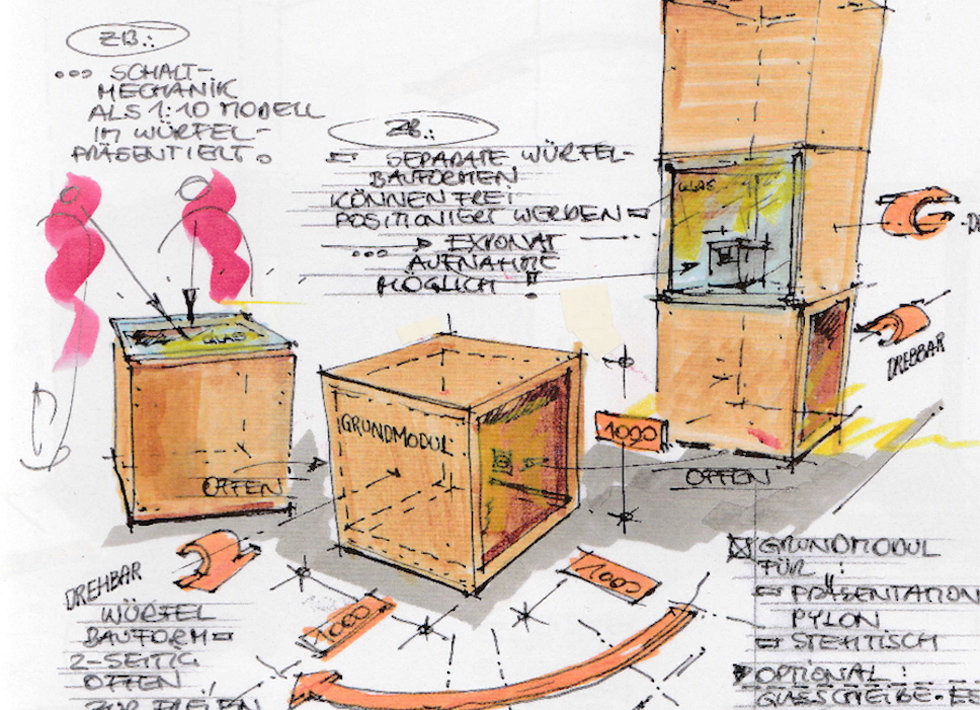 ZB.:
... SCHALT-
MECHANIK
ALS 1:10 MODELL
IM WÜRFEL-
PRÄSENTIERT.
ZB.:
SEPARATE WÜRFEL-
BAUFORMEN
KÖNNEN FREI
POSITIONIERT WERDEN
... EXPONAT
AUFNAHME
MÖGLICH !
GLAS
GLAS
DREHBAR
GRUNDMODUL
1000
OFFEN
OFFEN
DREHBAR
1000
1000
WÜRFEL
BAUFORM
2-SEITIG
OFFEN
GRUNDMODUL
FÜR :
PRÄSENTATION
PYLON
STEHTISCH
OPTIONAL :
GLASSCHEIBE